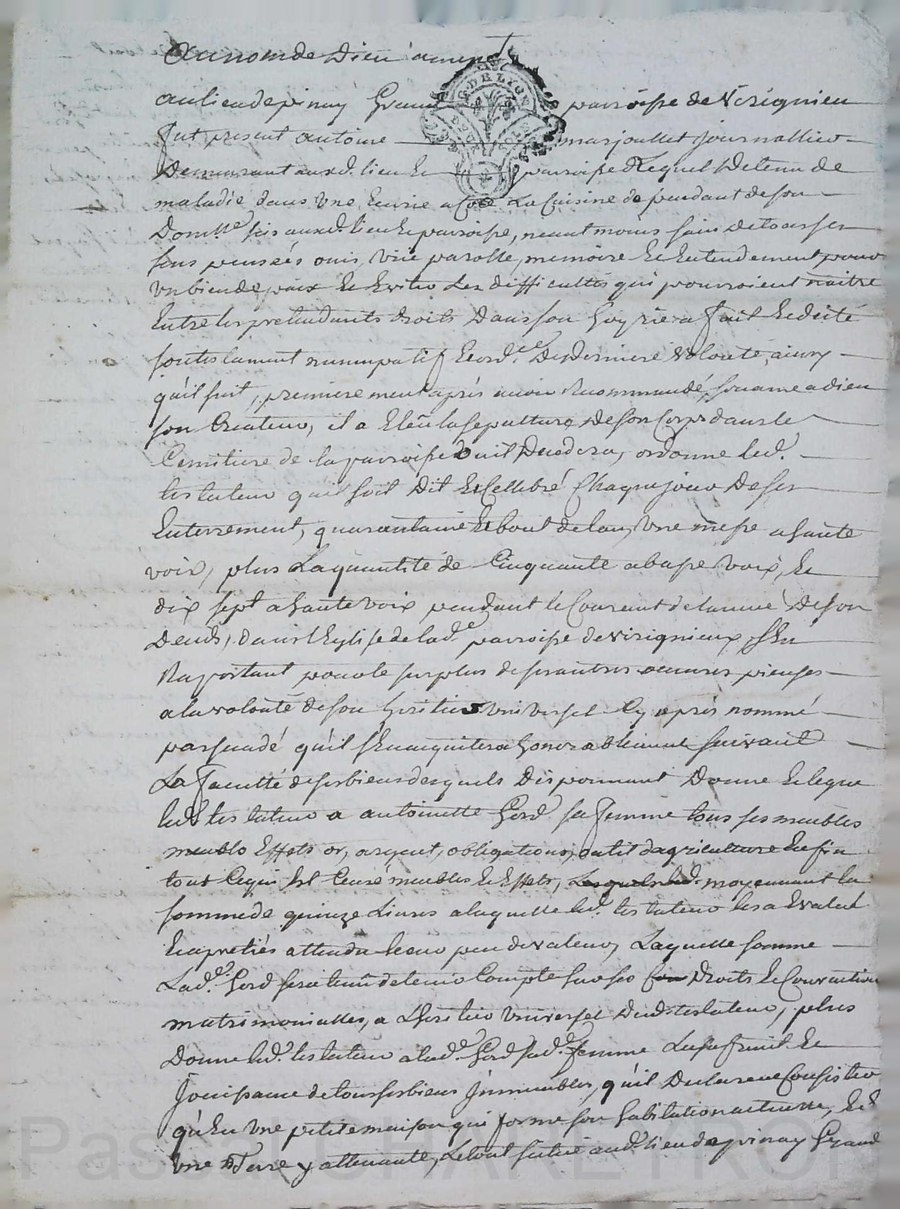 Au nom de Dieu amen
au lieu de pinay Grand paroisse de Virignieu
fut present antoine marjollet journallier
Demeurant aux d. lieu et paroisse Lequel Detenu de
maladie dans une Ecurie a Coté La Cuisine dépendant de son
Dom.lle sis aux d. lieu et paroisse, neantmoins sain de tous ses
sens pensées ouie, vüe parolle, mémoire et Entendement pour
un bien de paix et Eviter Les difficultés qui pourroient naitre
Entre les pretendants droits Dans son Hoyrie a fait et dicté
son testament nuncupatif et ord.ce De derniere volonté, ainsy
qu'il suit, premierement après avoir Recommandé son ame a dieu
son Createur, il a Eleu la sepulture De son Corps dans le
Cemitiere de la paroisse d'ou il Decedera, ordonne led.
testateur qu'il soit Dit et Cellebré Chaque jour De ses
Enterrement, quarantaine et bout de l'an, Une messe a haute
voix, plus La quantité de Cinquante a basse voix, et
dix sept a haute voix pendant le Courent de l'année De son
Deceds, dans l'Eglise de lad.e paroisse de virignieux, s'En
Raportant pour le surplus de ses autres œuvres pieuses
a la volonté de son Heritier universel Cy après nommé
persuadé qu'il s'En acquitera honorablement suivant
La faculté de ses biens desquels Disponnant Donne et legue
led. testateur a antoinette Gord sa femme tous ses meubles
meublo Effets or, argent, obligations, outil d'agriculture Enfin
tout Ce qui Est Censé meubles et Effets, Lesquels led. moyennant la
somme de quinze Livres a laquelle led. testateur les a Evalué
et apretiés attendu leur peu de valeur, Laquelle somme
Lad.e Gord sera tenu de tenir Compte sur ses Droits et Convention
matrimonialles, a L'heritier Universel Dud. testateur, plus
Donne led. testateur a lad.e Gord sad.e femme L'usufruit et
Jouissance de tous ses biens Jmmeubles, qu'il Declare ne Consister
qu'En Une petite maison qui forme son habitation actuelle, Et
Une Terre y attenante, Le tout situé aud. lieu de pinay Grand
Pascal CHAREYRON